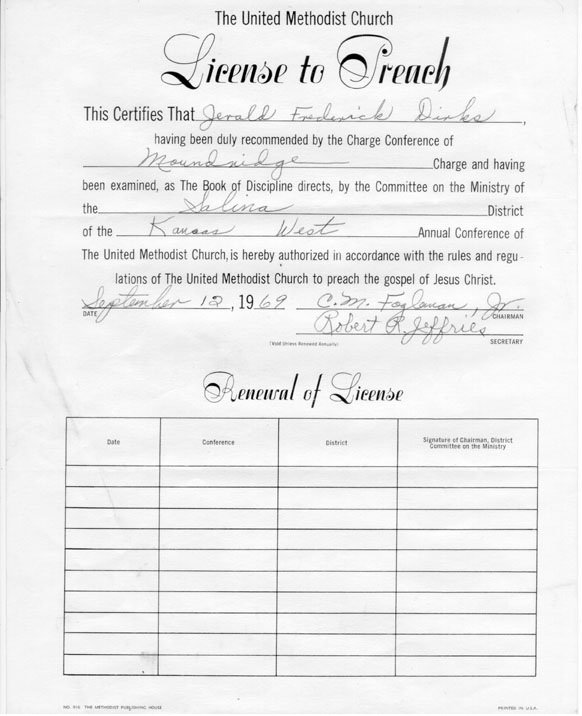 The United Methodist Church
License to Preach
This Certifies That Jerald Frederick Dirks,
having been duly recommended by the Charge Conference of
Moundridge Charge and having
been examined, as The Book of Discipline directs, by the Committee on the Ministry of
the Salina District
of the Kansas West Annual Conference of
The United Methodist Church, is hereby authorized in accordance with the rules and regu-
lations of The United Methodist Church to preach the gospel of Jesus Christ.
September 12, 1969 C.M. Fogleman, Jr.
DATE CHAIRMAN
Robert R. Jeffries
SECRETARY
(Void Unless Renewed Annually)
Renewal of License
Date Conference District Signature of Chairman, District
Committee on the Ministry
NO. 916 THE METHODIST PUBLISHING HOUSE PRINTED IN U.S.A.